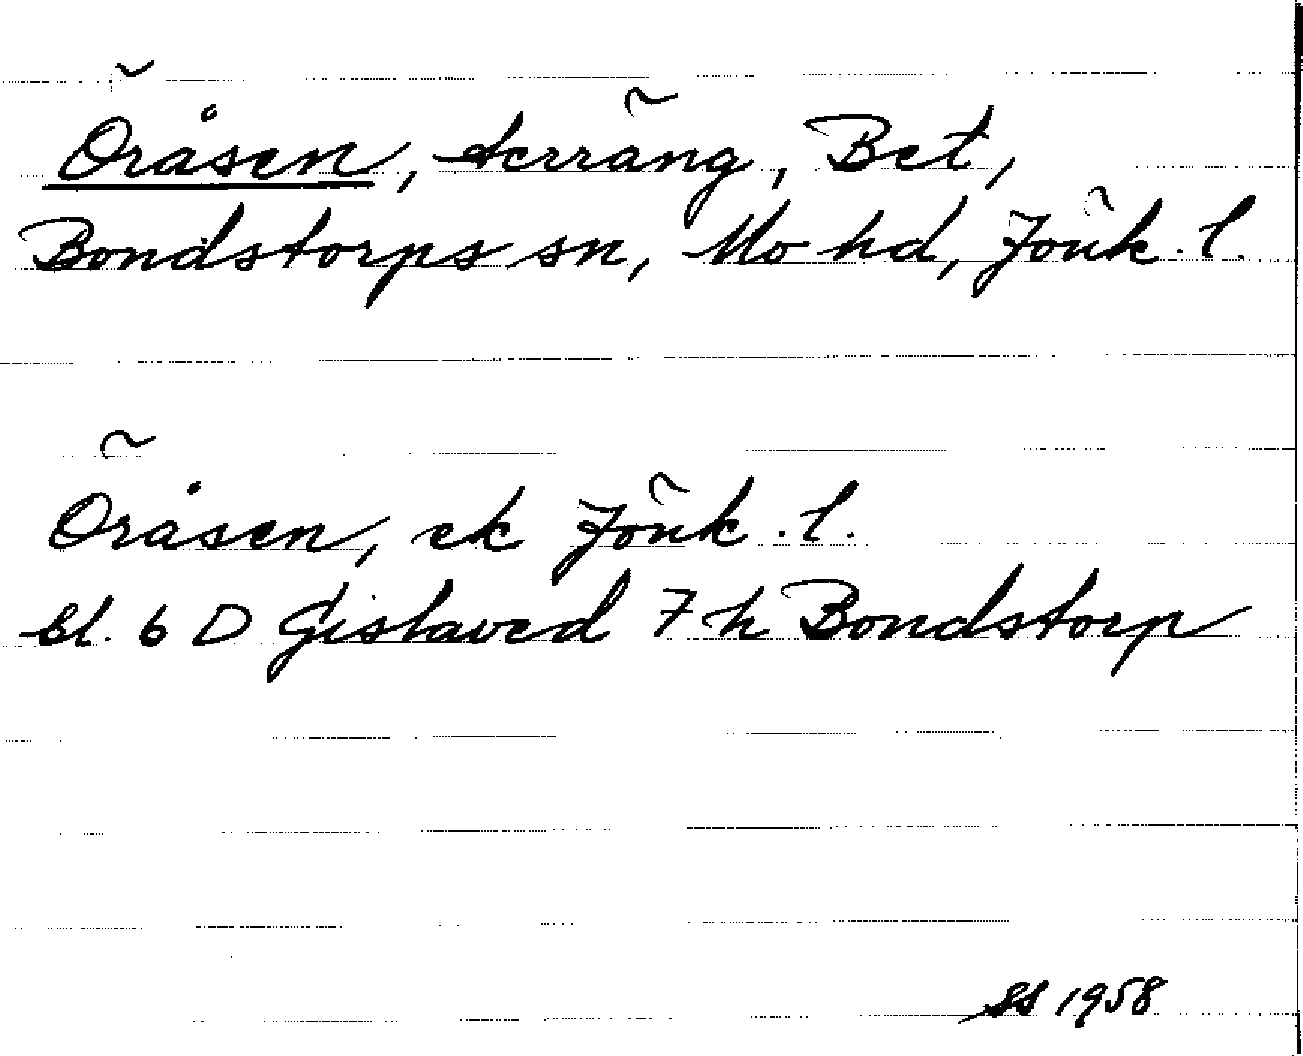 Öråsen, terräng, Bet,
Bondstorps sn, Mo hd, Jönk. l.
Öråsen, ek Jönk. l.
bl. 6 D Gislaved 7 h Bondstorp
SS 1958